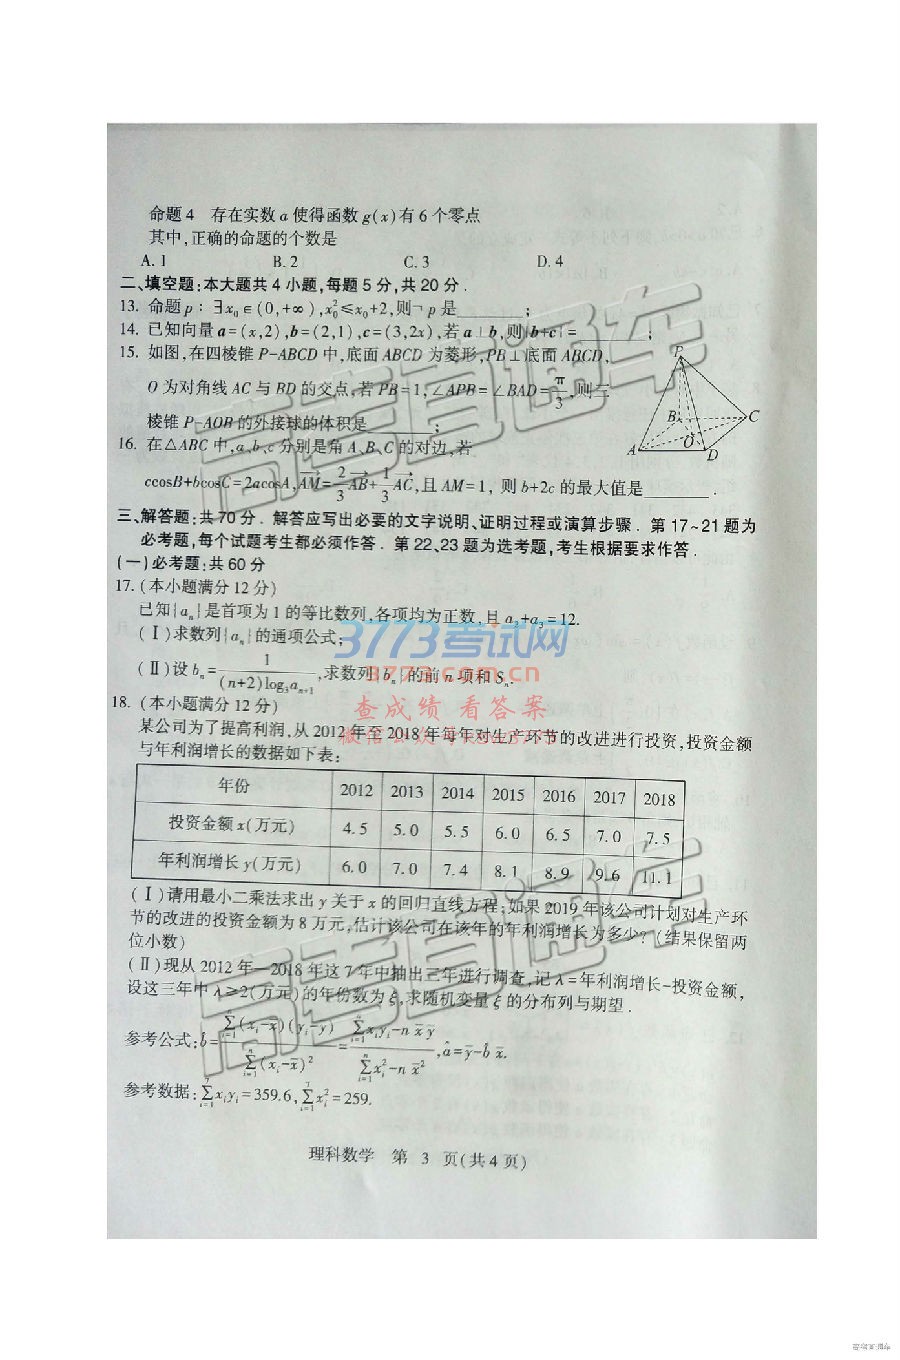 命题4 存在实数a使得函数g(x)有6个零点
其中,正确的命题的个数是
A. 1 B. 2 C. 3 D. 4
二、填空题:本大题共4小题,每题5分,共20分.
13. 命题p:∃x₀∈(0,+∞),x₀²≤x₀+2,则¬p是________;
14. 已知向量a=(x,2),b=(2,1),c=(3,2x),若a⊥b,则|b+c|=________;
15. 如图,在四棱锥P-ABCD中,底面ABCD为菱形,PB⊥底面ABCD,
O为对角线AC与BD的交点,若PB=1,∠APB=∠BAD=π/3,则三
棱锥P-AOB的外接球的体积是________;
P
B
C
A
O
D
16. 在△ABC中,a、b、c分别是角A、B、C的对边,若
ccosB+bcosC=2acosA,AM→=2/3AB→+1/3AC→,且AM=1,则b+2c的最大值是________.
三、解答题:共70分.解答应写出必要的文字说明、证明过程或演算步骤.第17~21题为
必考题,每个试题考生都必须作答.第22、23题为选考题,考生根据要求作答.
(一)必考题:共60分
17. (本小题满分12分)
已知{aₙ}是首项为1的等比数列,各项均为正数,且a₂+a₃=12.
(Ⅰ)求数列{aₙ}的通项公式;
(Ⅱ)设bₙ=1/((n+2)log₃aₙ₊₁),求数列{bₙ}的前n项和Sₙ.
18. (本小题满分12分)
某公司为了提高利润,从2012年至2018年每年对生产环节的改进进行投资,投资金额
与年利润增长的数据如下表:
年份 2012 2013 2014 2015 2016 2017 2018
投资金额x(万元) 4.5 5.0 5.5 6.0 6.5 7.0 7.5
年利润增长y(万元) 6.0 7.0 7.4 8.1 8.9 9.6 11.1
(Ⅰ)请用最小二乘法求出y关于x的回归直线方程;如果2019年该公司计划对生产环
节的改进的投资金额为8万元,估计该公司在该年的年利润增长为多少?(结果保留两
位小数)
(Ⅱ)现从2012年—2018年这7年中抽出三年进行调查,记λ=年利润增长-投资金额,
设这三年中λ≥2(万元)的年份数为ξ,求随机变量ξ的分布列与期望.
参考公式:b̂=∑ⁿᵢ₌₁(xᵢ-x̄)(yᵢ-ȳ)/∑ⁿᵢ₌₁(xᵢ-x̄)²=∑ⁿᵢ₌₁xᵢyᵢ-nx̄ȳ/∑ⁿᵢ₌₁xᵢ²-nx̄²,â=ȳ-b̂x̄.
参考数据:∑⁷ᵢ₌₁xᵢyᵢ=359.6,∑⁷ᵢ₌₁xᵢ²=259.
理科数学 第 3 页(共4页)
高考直通车
3773考试网
3773.com.cn
查成绩 看答案
高考直通车
高考直通车